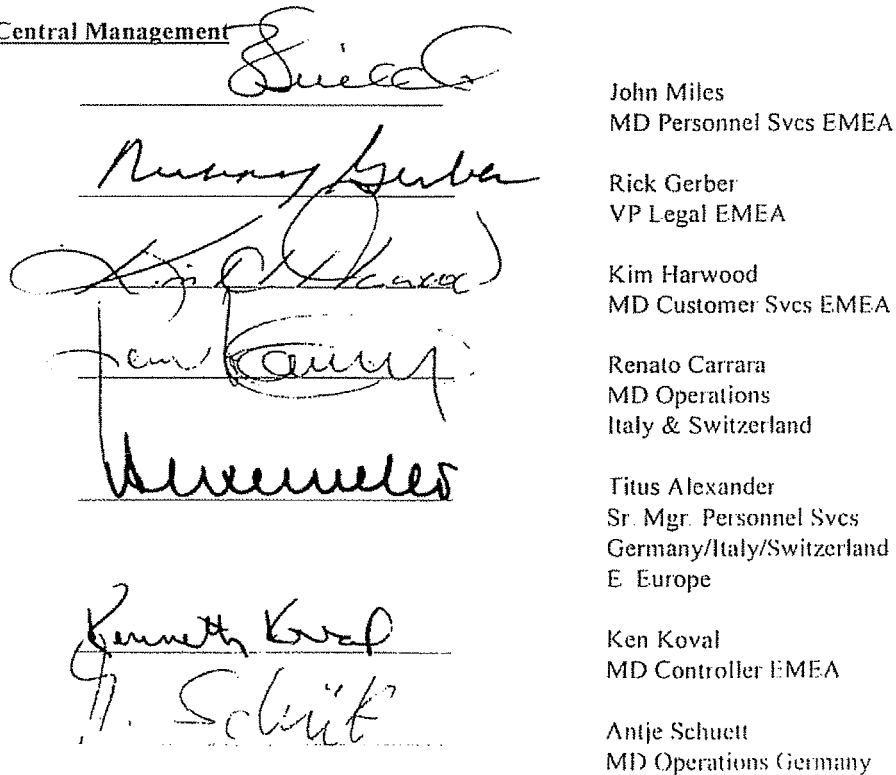 Central Management
John Miles
MD Personnel Svcs EMEA
Gerber
Rick Gerber
VP Legal EMEA
Harwood
Kim Harwood
MD Customer Svcs EMEA
Renato Carrara
MD Operations
Italy & Switzerland
Titus Alexander
Sr. Mgr. Personnel Svcs
Germany/Italy/Switzerland
E Europe
Kenneth Koval
Ken Koval
MD Controller EMEA
Antje Schuett
MD Operations Germany